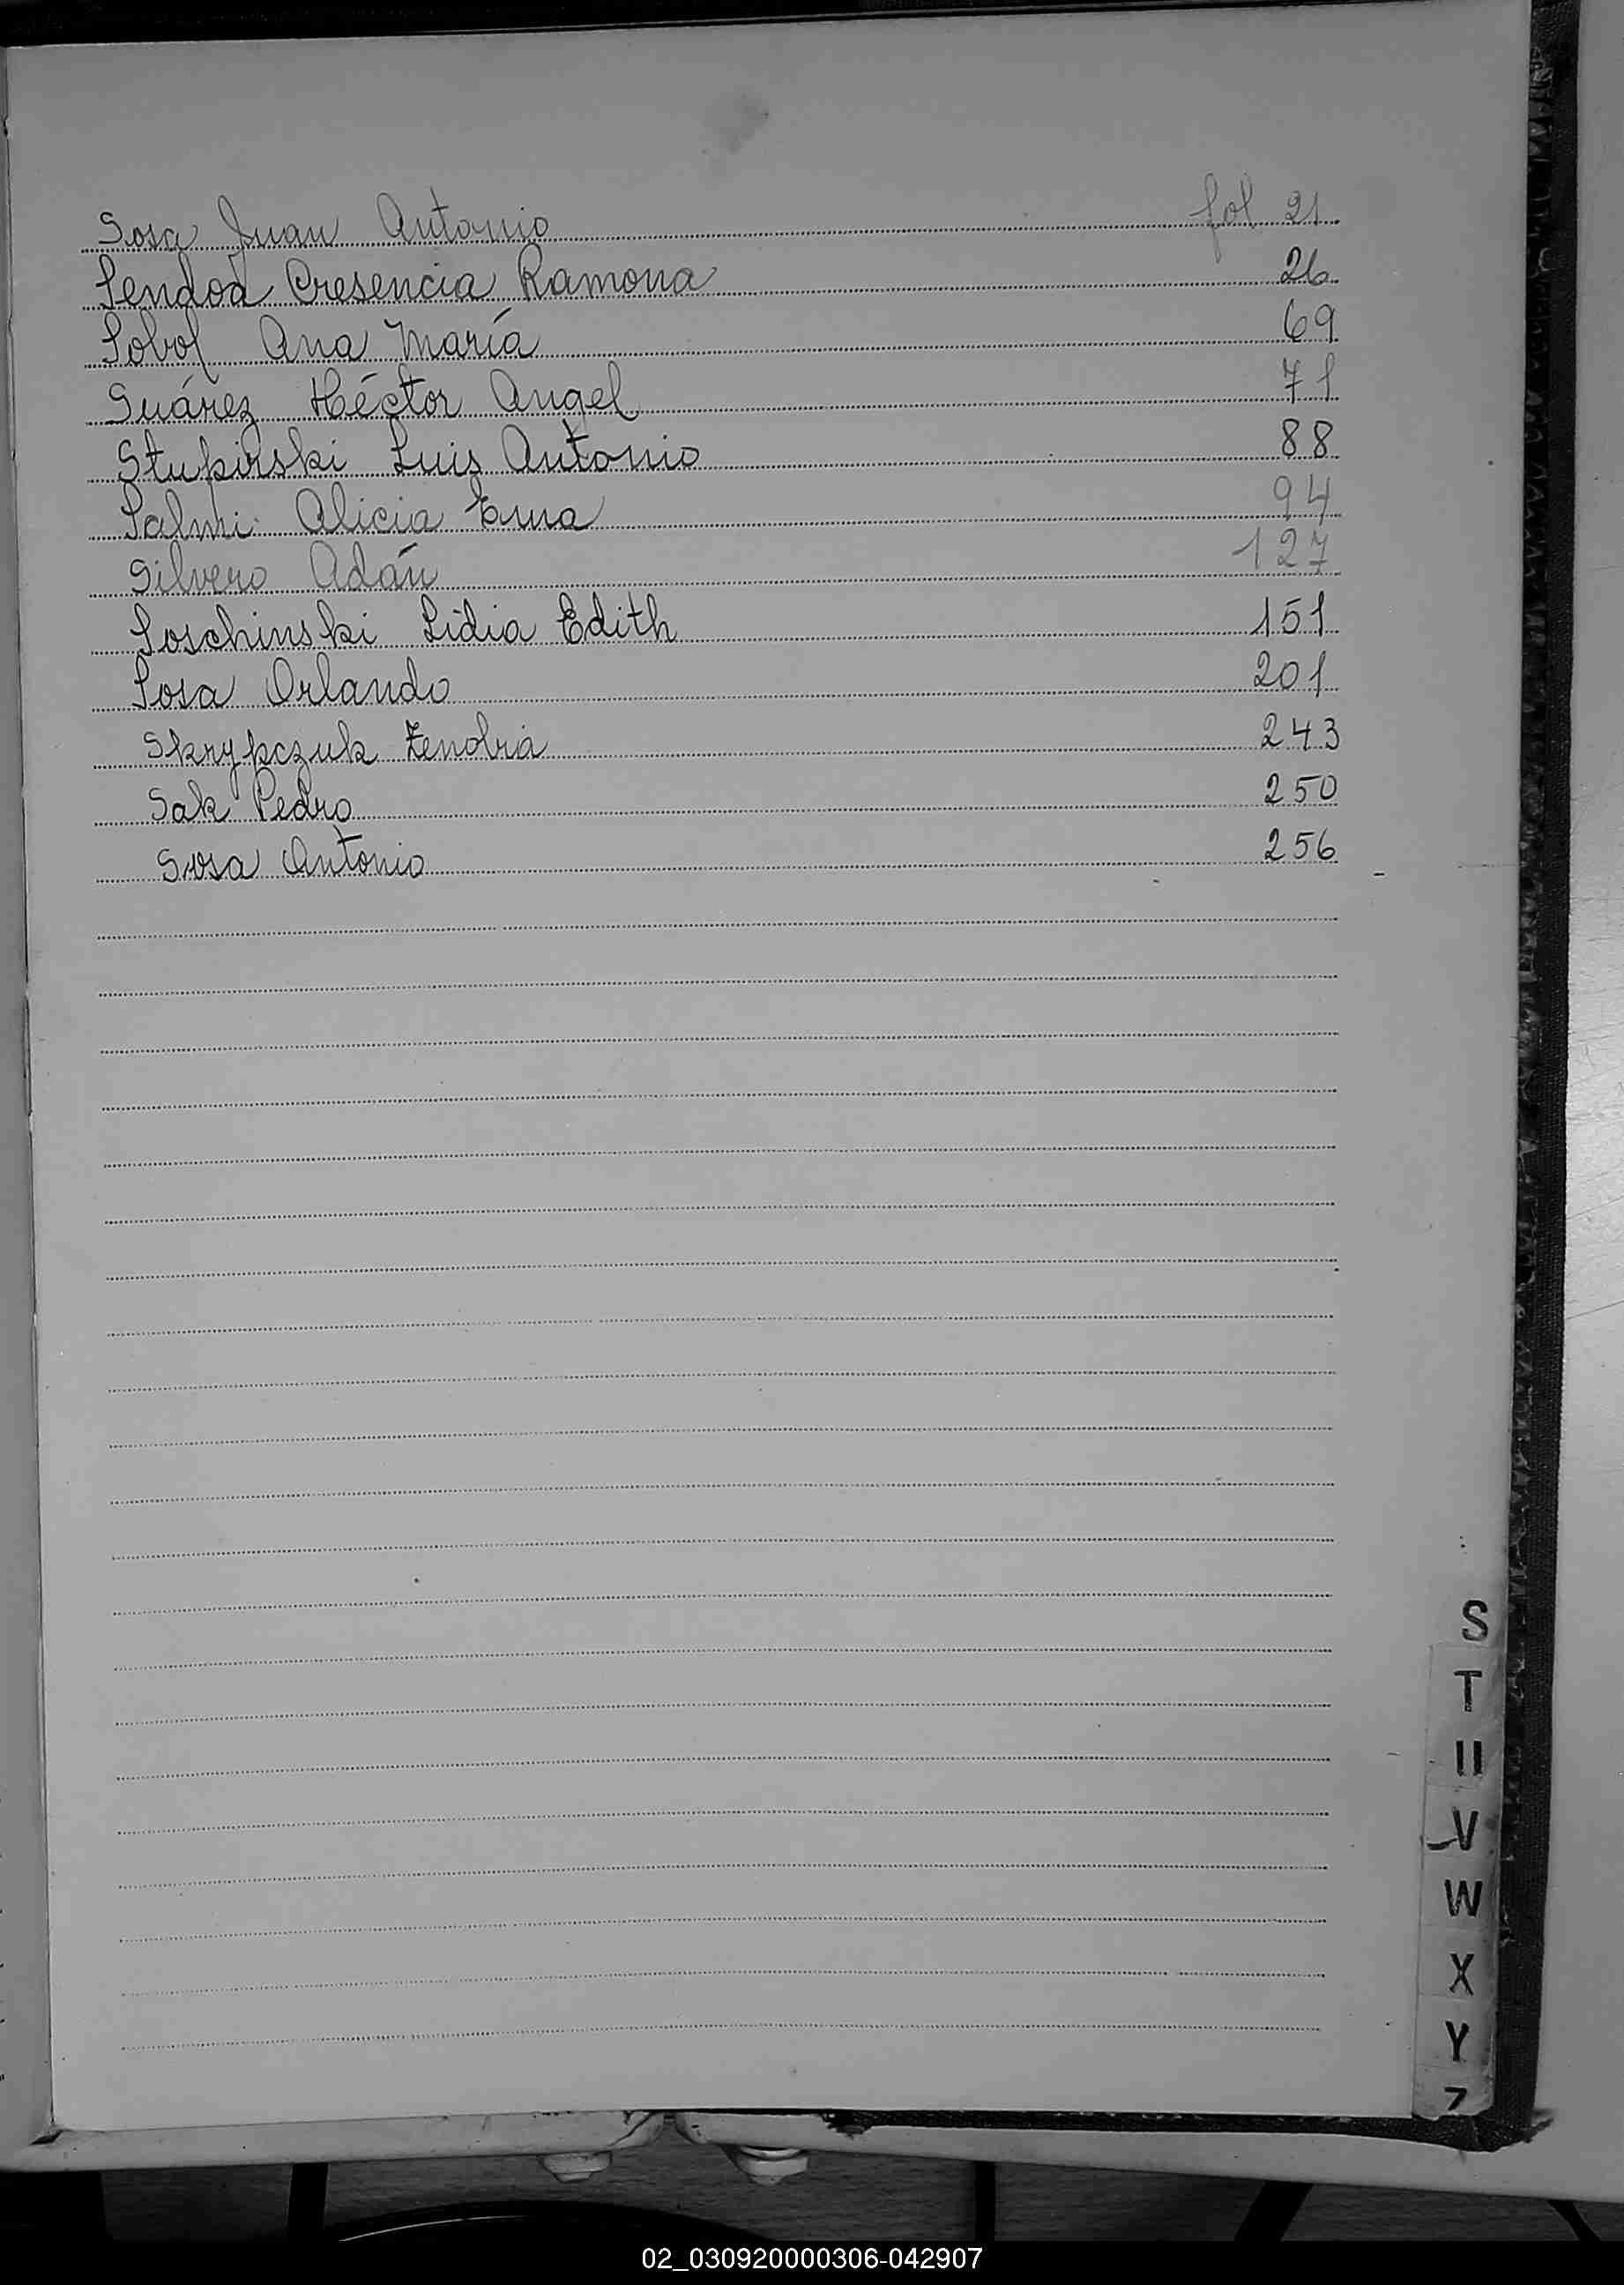 Sosa Juan Antonio fol 21
Sendod Cresencia Ramona 26
Sobol Ana María 69
Suárez Héctor Angel 71
Stupinski Luis Antonio 88
Salmi Alicia Erna 94
Silvero Adán 127
Soschinski Lidia Edith 151
Sosa Orlando 201
Skrypczuk Zenobia 243
Sak Pedro 250
Sosa Antonio 256
S
T
U
V
W
X
Y
Z
02_030920000306-042907